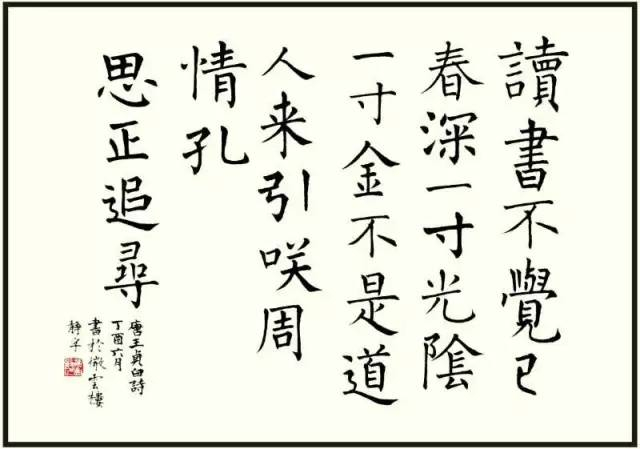 讀書不覺已
春深一寸光陰
一寸金不是道
人来引咲周
情孔
思正追尋
唐王貞白詩
丁酉六月
書於微雲樓
靜子